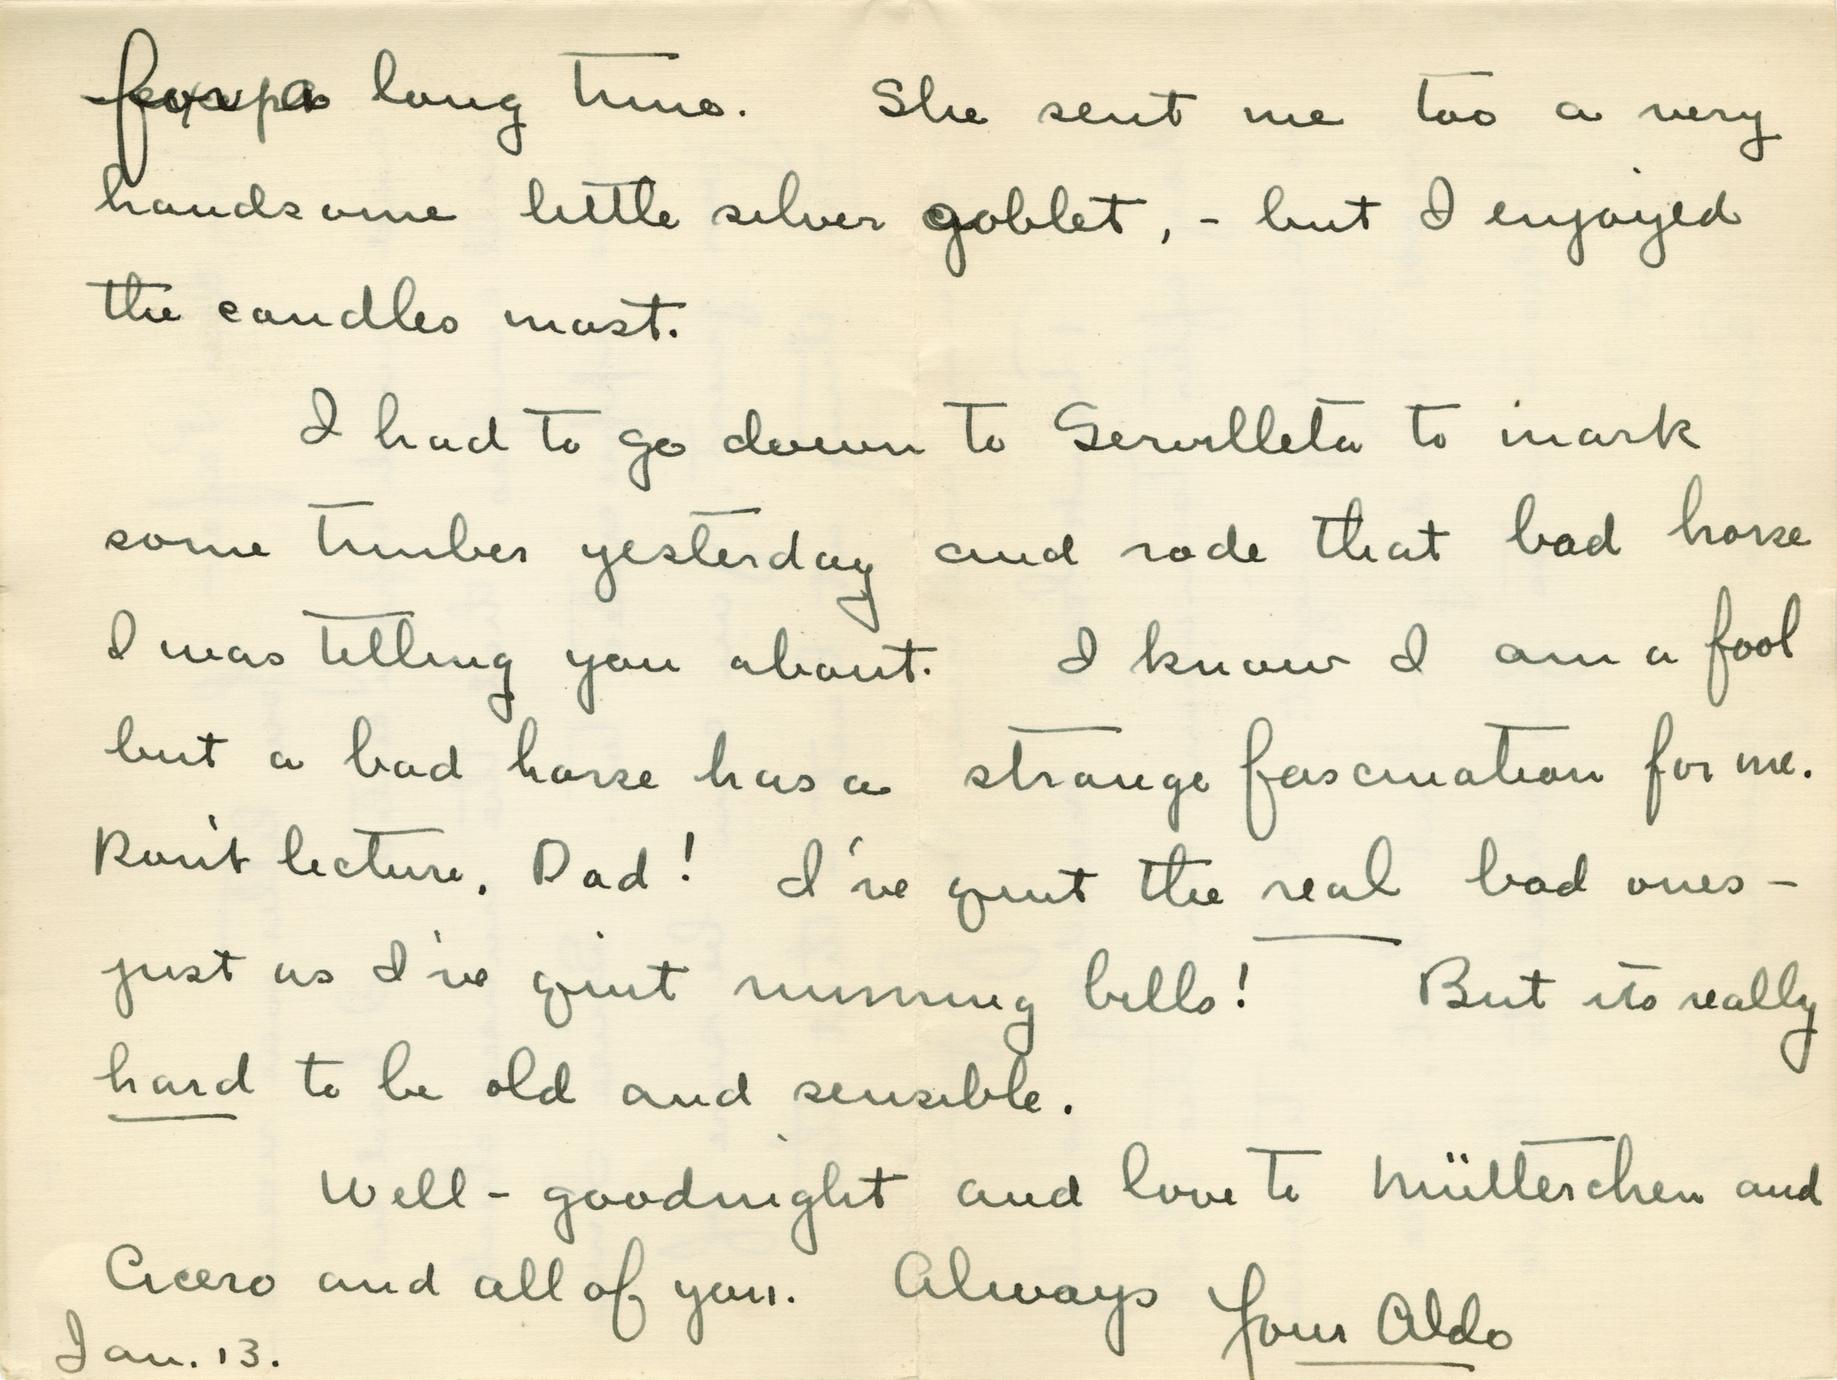 for a long time. She sent me too a very
handsome little silver goblet, - but I enjoyed
the candles most.
I had to go down to Servilleta to mark
some timber yesterday and rode that bad horse
I was telling you about. I know I am a fool
but a bad horse has a strange fascination for me.
Don't lecture, Dad! I've quit the real bad ones -
just as I've quit running bills! But its really
hard to be old and sensible.
Well - goodnight and love to Mütterchen and
Cicero and all of you. Always
Your Aldo
Jan. 13.